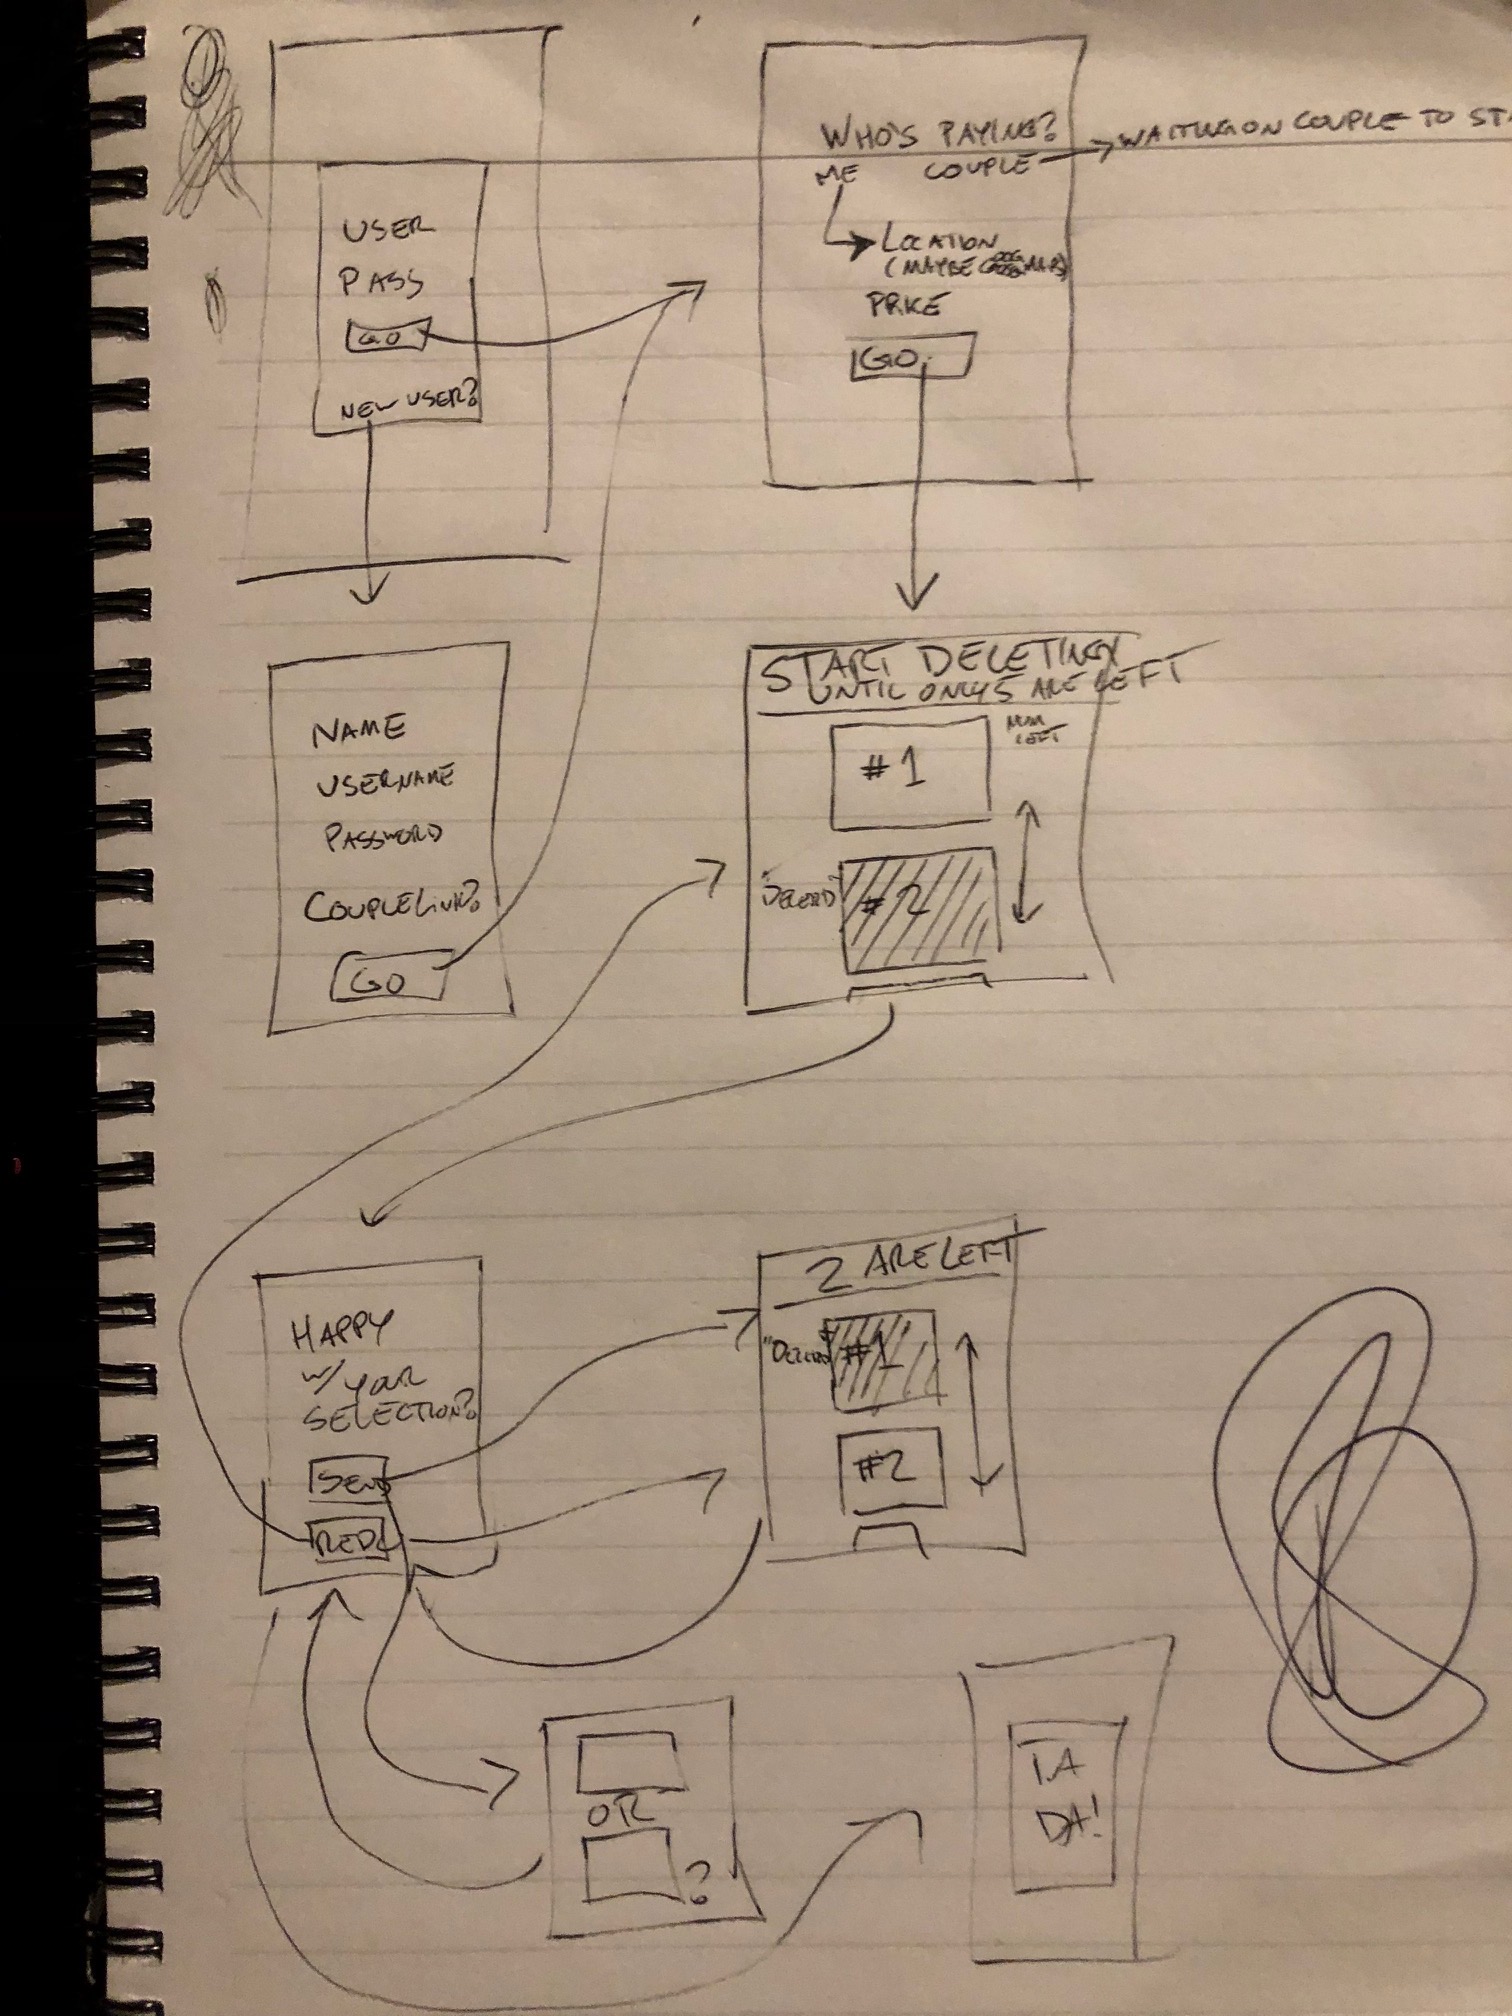 USER
PASS
GO
NEW USER?
WHO'S PAYING?
ME COUPLE
WAITING ON COUPLE TO ST
LOCATION
(MAYBE
PRICE
GO
NAME
USERNAME
PASSWORD
COUPLE LINK?
GO
START DELETING
UNTIL ONLY 5 ARE LEFT
NUM
LEFT
#1
#2
HAPPY
W/ YOUR
SELECTION?
SEND
REDO
2 ARE LEFT
#1
#2
OR
?
TA
DA!